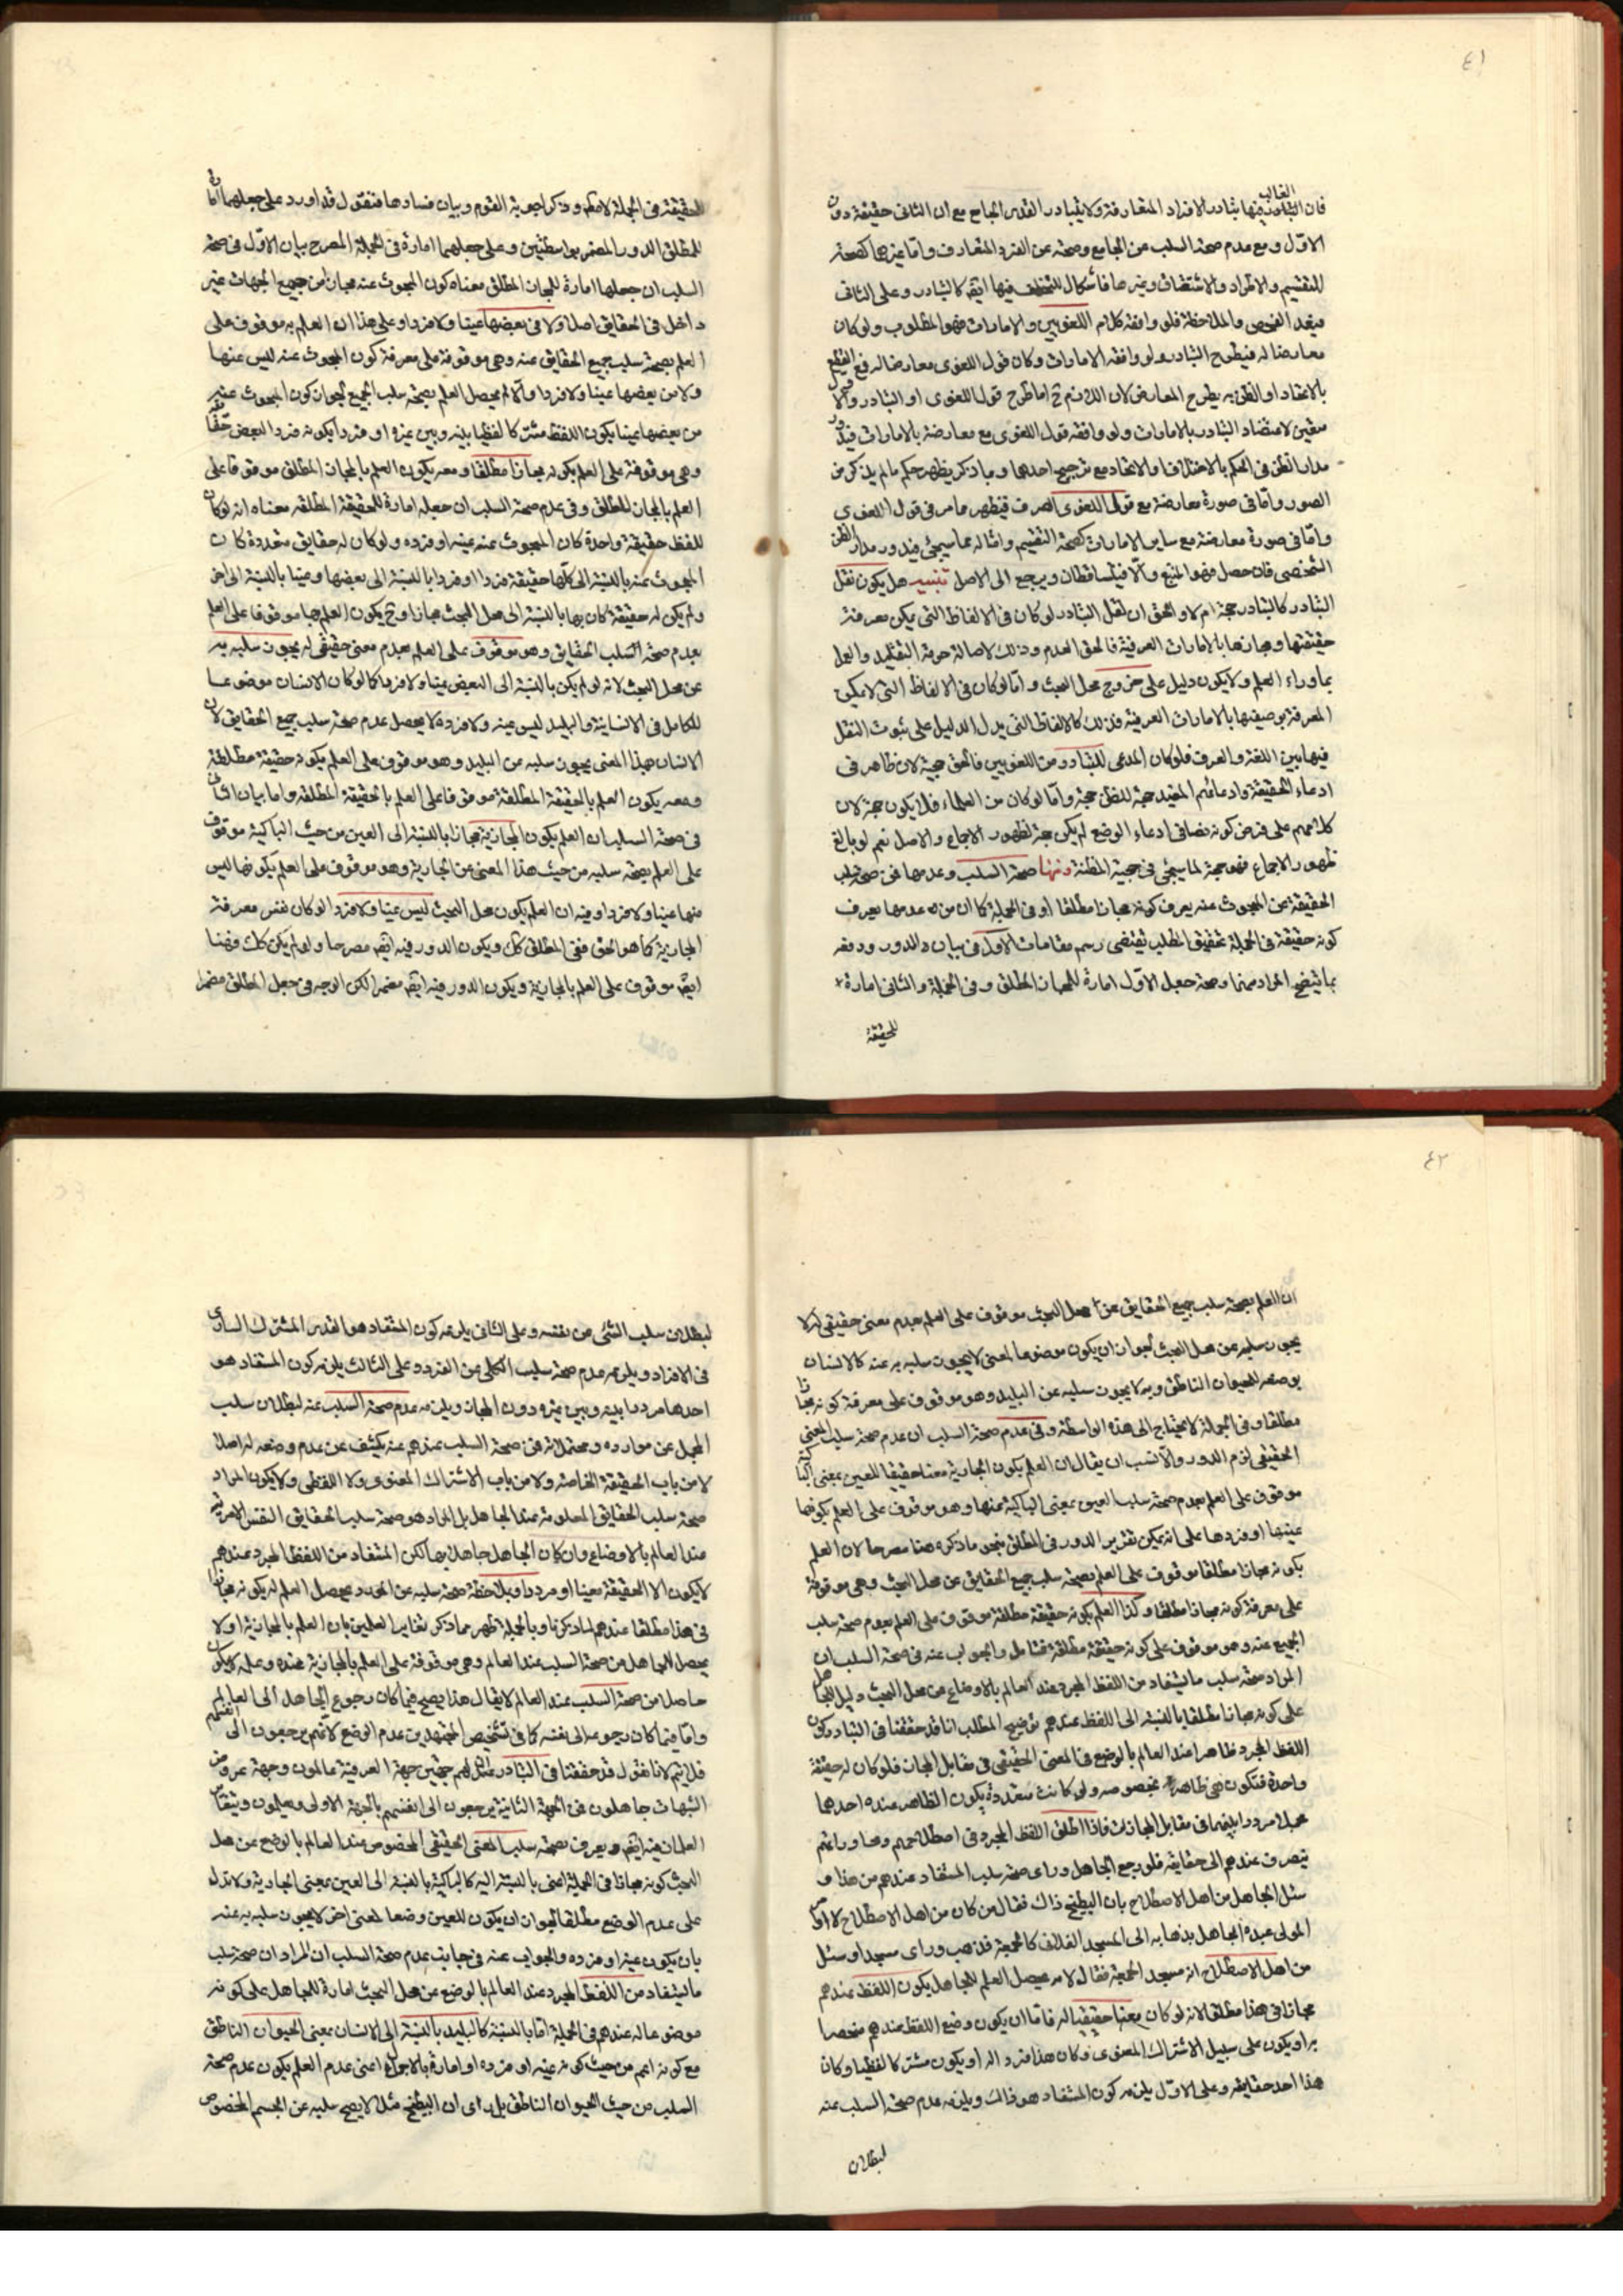 ٤١
الغالب
فان التبادر فيها يتبادر الافراد المتعارفة ولا يتبادر القدر الجامع مع ان الثانى حقيقة دون
الاوّل ومع عدم صحة السلب عن الجامع وصحته عن الفرد المتعارف وامّا غيرها كصحة
التقسيم والاطراد والاستثناء وغيرها فاشكال للتخلف فيها ايضا كالتبادر وعلى الثانى
فبعد الفحص والملاحظة فلو وافقه كلام اللغويين والامارات فهو المطلوب ولو كان
معارضا له فيطرح التبادر ولو وافقه الامارات وكان قول اللغوى معارضا له رفع القطع
بالاعتقاد او الظن به يطرح المعارض لان اللازم ح اما طرح قول اللغوى او التبادر والا
معين لاعتضاد التبادر بالامارات ولو وافقه قول اللغوى مع معارضة بالامارات فيدور
مدار الظن فى الحكم بالاختلاف والاتحاد مع ترجيح احدهما وبما ذكر يظهر حكم ما لم يذكر من
الصور وامّا فى صورة معارضة مع قول اللغوى الصرف فيظهر مما مر فى قول اللغوى
وامّا فى صورة معارضة مع ساير الامارات كصحة التقسيم وامثاله مما سيجئ فيدور مدار الظن
الشخصى فان حصل فهو المتبع والّا فيتساقطان ويرجع الى الاصل تنبيه هل يكون نقل
التبادر كالتبادر حجة ام لا والحق ان نقل التبادر لو كان فى الالفاظ التى يمكن معرفة
حقيقتها ومجازها بالامارات العرفية فالحق العدم وذلك لاصالة حرمة التقليد والعمل
بما وراء العلم ولا يكون دليل على خروج محل البحث وامّا لو كان فى الالفاظ التى لا يمكن
المعرفة بوضعها بالامارات العرفية وذلك كالالفاظ التى يدل الدليل على ثبوت النقل
فيها بين اللغة والعرف فلو كان المدعى للتبادر من اللغويين فالحق حجية لان ظاهر فى
ادعاء الحقيقة وادعائهم المفيد حجة للظن حجة وامّا لو كان من العلماء فلا يكون حجة لان
كلامهم على فرض كونه نصا فى ادعاء الوضع لم يكن حجة لظهور الاجماع والاصل نعم لو بالغ
ظهور الاجماع فهو حجة لما سيجئ فى حجية المظنة ومنها صحة السلب وعدمها فمن صحة سلب
الحقيقة عن المبحوث عنه يعرف كونه مجازا مطلقا او فى الجملة كما ان من عدمها يعرف
كونه حقيقة فى الجملة تحقيق المطلب يقتضى رسم مقامات الاوّل فى بيان الدور ودفعه
بما يتضح المراد منهما وصحة جعل الاوّل امارة للمجاز المطلق وفى الجملة والثانى امارة
للحقيقة
الحقيقة فى الجملة لا مطلقا وذكر اجوبة القوم وبيان فسادها فنقول قد اورد على جعلهما امارة
للمطلق الدور المضمر بواسطتين وعلى جعلهما امارة فى الجملة المصرح بيان الاوّل فى صحة
السلب ان جعلها امارة للمجاز المطلق معناه كون المبحوث عنه مجازا من جميع الجهات غير
داخل فى الحقايق اصلا ولا فى بعضها عينا ولا فردا وعلى هذا ان العلم به موقوف على
العلم بصحة سلب جميع الحقايق عنه وهى موقوفة على معرفة كون المبحوث عنه ليس عنها
ولا من بعضها عينا ولا فردا والّا لم يحصل العلم بصحة سلب الجميع لجواز كون المبحوث عنه
من بعضها عينا يكون اللفظ مشتركا لفظيا بينه وبين غيره او فردا يكون فردا لبعض حقايقه
وهى موقوفة على العلم بكونه مجازا مطلقا ومعه يكون العلم بالمجاز المطلق موقوفا على
العلم بالمجاز المطلق وفى عدم صحة السلب ان جعله امارة للحقيقة المطلقة معناه انه لو كان
للفظ حقيقة واحدة كان المبحوث عنه عينه او فرده ولو كان له حقايق متعددة كان
المبحوث عنه بالنسبة الى كلّها حقيقة فردا او فردا بالنسبة الى بعضها وعينا بالنسبة الى اخر
ولم يكن له حقيقة كان بها بالنسبة الى محل البحث مجازا وح يكون العلم بها موقوفا على العلم
بعدم صحة السلب الحقايق وهو موقوف على العلم بعدم معنى حقيقى له يجوز سلبه به
عن محل البحث لانه لو لم يكن بالنسبة الى البعض عينا ولا فردا كما لو كان الانسان موضوعا
للكامل فى الانسانية والبليد ليس عينه ولا فرده لا يحصل عدم صحة سلب جميع الحقايق لان
الانسان بهذا المعنى يجوز سلبه عن البليد وهو موقوف على العلم بكونه حقيقة مطلقة
ومعه يكون العلم بالحقيقة المطلقة موقوفا على العلم بالحقيقة المطلقة واما بيان الثانى
فى صحة السلب ان العلم بكون الجارية مجازا بالنسبة الى العين من حيث الباكية موقوف
على العلم بصحة سلبه من حيث هذا المعنى عن الجارية وهو موقوف على العلم بكونها ليس
منها عينا ولا فردا وفيه ان العلم بكون محل البحث ليس عينا ولا فردا لو كان نفس معرفة
المجازية كما هو الحق ففى المطلق كك ويكون الدور فيه ايضا مصرحا ولو لم يكن كك فهنا
ايضا موقوف على العلم بالمجازية ويكون الدور فيه ايضا مضمرا لكن الوجه فى جعل المطلق مضمرا
٤٢
ان العلم بصحة سلب جميع الحقايق عن محل البحث موقوف على العلم بعدم معنى حقيقى له لا
يجوز سلبه عن محل البحث لجواز ان يكون موضوعا لمعنى لا يجوز سلبه به عنه كالانسان
بوضعه للحيوان الناطق وبه لا يجوز سلبه عن البليد وهو موقوف على معرفة كونه مجازا
مطلقا وفى الجملة لا يحتاج الى هذه الواسطة وفى عدم صحة السلب ان عدم صحة سلب المعنى
الحقيقى لزم الدور والانسب ان يقال ان العلم بكون الجارية معنا حقيقيا للعين بمعنى الباكية
موقوف على العلم بعدم صحة سلب العين بمعنى الباكية منها وهو موقوف على العلم بكونها
عينها او فردها على انه يمكن تقرير الدور فى المطلق بنحو ما ذكره هنا مصرحا لان العلم
بكونه مجازا مطلقا موقوف على العلم بصحة سلب جميع الحقايق عن محل البحث وهى موقوفة
على معرفة كونه مجازا مطلقا وكذا العلم بكونه حقيقة مطلقة موقوف على العلم بعدم صحة سلب
الجميع عنه وهو موقوف على كونه حقيقة مطلقة فتامل والجواب عنه فى صحة السلب ان
المراد صحة سلب ما يستفاد من اللفظ المجرد عند العالم بالاوضاع عن محل البحث دليل للجاهل
على كونه مجازا مطلقا بالنسبة الى اللفظ عندهم توضيح المطلب انا قد حققنا فى التبادر كون
اللفظ المجرد ظاهرا عند العالم بالوضع فى المعنى الحقيقى فى مقابل المجاز فلو كان له حقيقة
واحدة فتكون هى ظاهرة بخصوصه ولو كانت متعددة يكون الظاهر عنده احدهما
مجملا مرددا بينهما فى مقابل المجازات فاذا اطلق اللفظ المجرد فى اصطلاحهم ومحاوراتهم
ينصرف عندهم الى حقايقه فلو رجع الجاهل وراى صحة سلب المستفاد عندهم من هذا و
سئل الجاهل من اهل الاصطلاح بان البطيخ ذاك فقال من كان من اهل الاصطلاح لا او امر
المولى عبده الجاهل بذهابه الى المسجد الفلانى كالجمعة فذهب وراى مسجدا وسئل
من اهل الاصطلاح انه مسجد الجمعة فقال لا مر يحصل العلم للجاهل بكون اللفظ عندهم
مجازا فى هذا مطلقا لانه لو كان معنا حقيقيا له فامّا ان يكون وضع اللفظ عندهم منحصرا
به او يكون على سبيل الاشتراك المعنوى وكان هذا فردا له او يكون مشتركا لفظيا وكان
هذا احد حقايقه وعلى الاوّل يلزمه كون المستفاد هو ذلك ويلزمه عدم صحة السلب عنه
لبطلان
لبطلان سلب الشئ عن نفسه وعلى الثانى يلزمه كون المستفاد هو القدر المشترك السارى
فى الافراد ويلزمه عدم صحة سلب الكلى عن الفرد وعلى الثالث يلزمه كون المستفاد هو
احدها مرددا بينه وبين غيره دون المجاز ويلزمه عدم صحة السلب عنه لبطلان سلب
المجمل عن موارده ومحتملاته فمن صحة السلب عندهم عنه يكشف عن عدم وضعه له اصلا
لا من باب الحقيقة الخاصة ولا من باب الاشتراك المعنوى ولا اللفظى ولا يكون المراد
صحة سلب الحقايق المعلومة عند الجاهل بل المراد هو صحة سلب الحقايق النفس الامرية
عند العالم بالاوضاع وان كان الجاهل جاهلا بها لكن المستفاد من اللفظ المجرد عندهم
لا يكون الا الحقيقة معينا او مرددا وبملاحظة صحة سلبه عن المحدد يحصل العلم له بكونه مجازا
فى هذا مطلقا عندهم لما ذكرنا وبالجملة ظهر مما ذكر تغاير العلمين بان العلم بالمجازية اولا
يحصل للجاهل من صحة السلب عند العالم وهى موقوفة على العلم بالمجازية عنده وعلمه لا يكون
حاصلا من صحة السلب عند العالم لا يقال هذا يصح فيما كان رجوع الجاهل الى العالم
وامّا فيما كان رجوعه الى نفسه كما فى تشخيص المجتهدين عدم الوضع لانهم يرجعون الى انفسهم
فلا يتم لانا نقول قد حققنا فى التبادر ان لهم جهتين جهة العرفية عالمون وجهة عروض
الشبهات جاهلون فمن الجهة الثانية يرجعون الى انفسهم بالجهة الاولى ويعلمون ويتغاير
العلمان فيه ايضا ويعرف بصحة سلب المعنى الحقيقى المخصوص عند العالم بالوضع عن محل
البحث كونه مجازا فى الجملة اعنى بالنسبة اليه كالباكية بالنسبة الى العين بمعنى الجارية ولا تدل
على عدم الوضع مطلقا لجواز ان يكون للعين وضعا لمعنى اخر لا يجوز سلبه به عنه
بان يكون عينه او فرده والجواب عنه فى جانب عدم صحة السلب ان المراد ان صحة سلب
ما يستفاد من اللفظ المجرد عند العالم بالوضع عن محل البحث امارة للجاهل على كونه
موضوعا له عندهم فى الجملة امّا بالنسبة كالبليد بالنسبة الى الانسان بمعنى الحيوان الناطق
مع كونه اعم من حيث كونه عينه او فرده او امارة بالاجزاء اعنى عدم العلم بكون عدم صحة
السلب من حيث الحيوان الناطق بل راى ان البطيخ مثلا لا يصح سلبه عن الجسم المخصوص